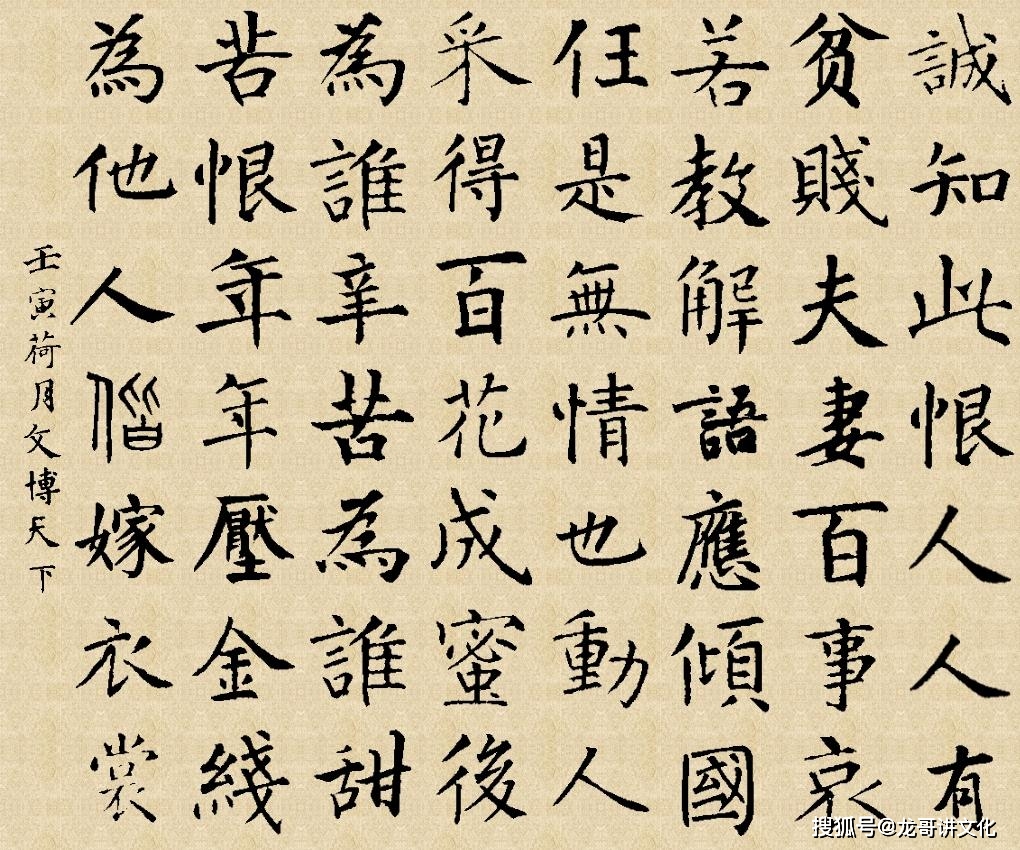 誠知此恨人人有
貧賤夫妻百事哀
若教解語應傾國
任是無情也動人
采得百花成蜜後
為誰辛苦為誰甜
苦恨年年壓金綫
為他人嫁衣裳
壬寅荷月文博天下
搜狐号@龙哥讲文化